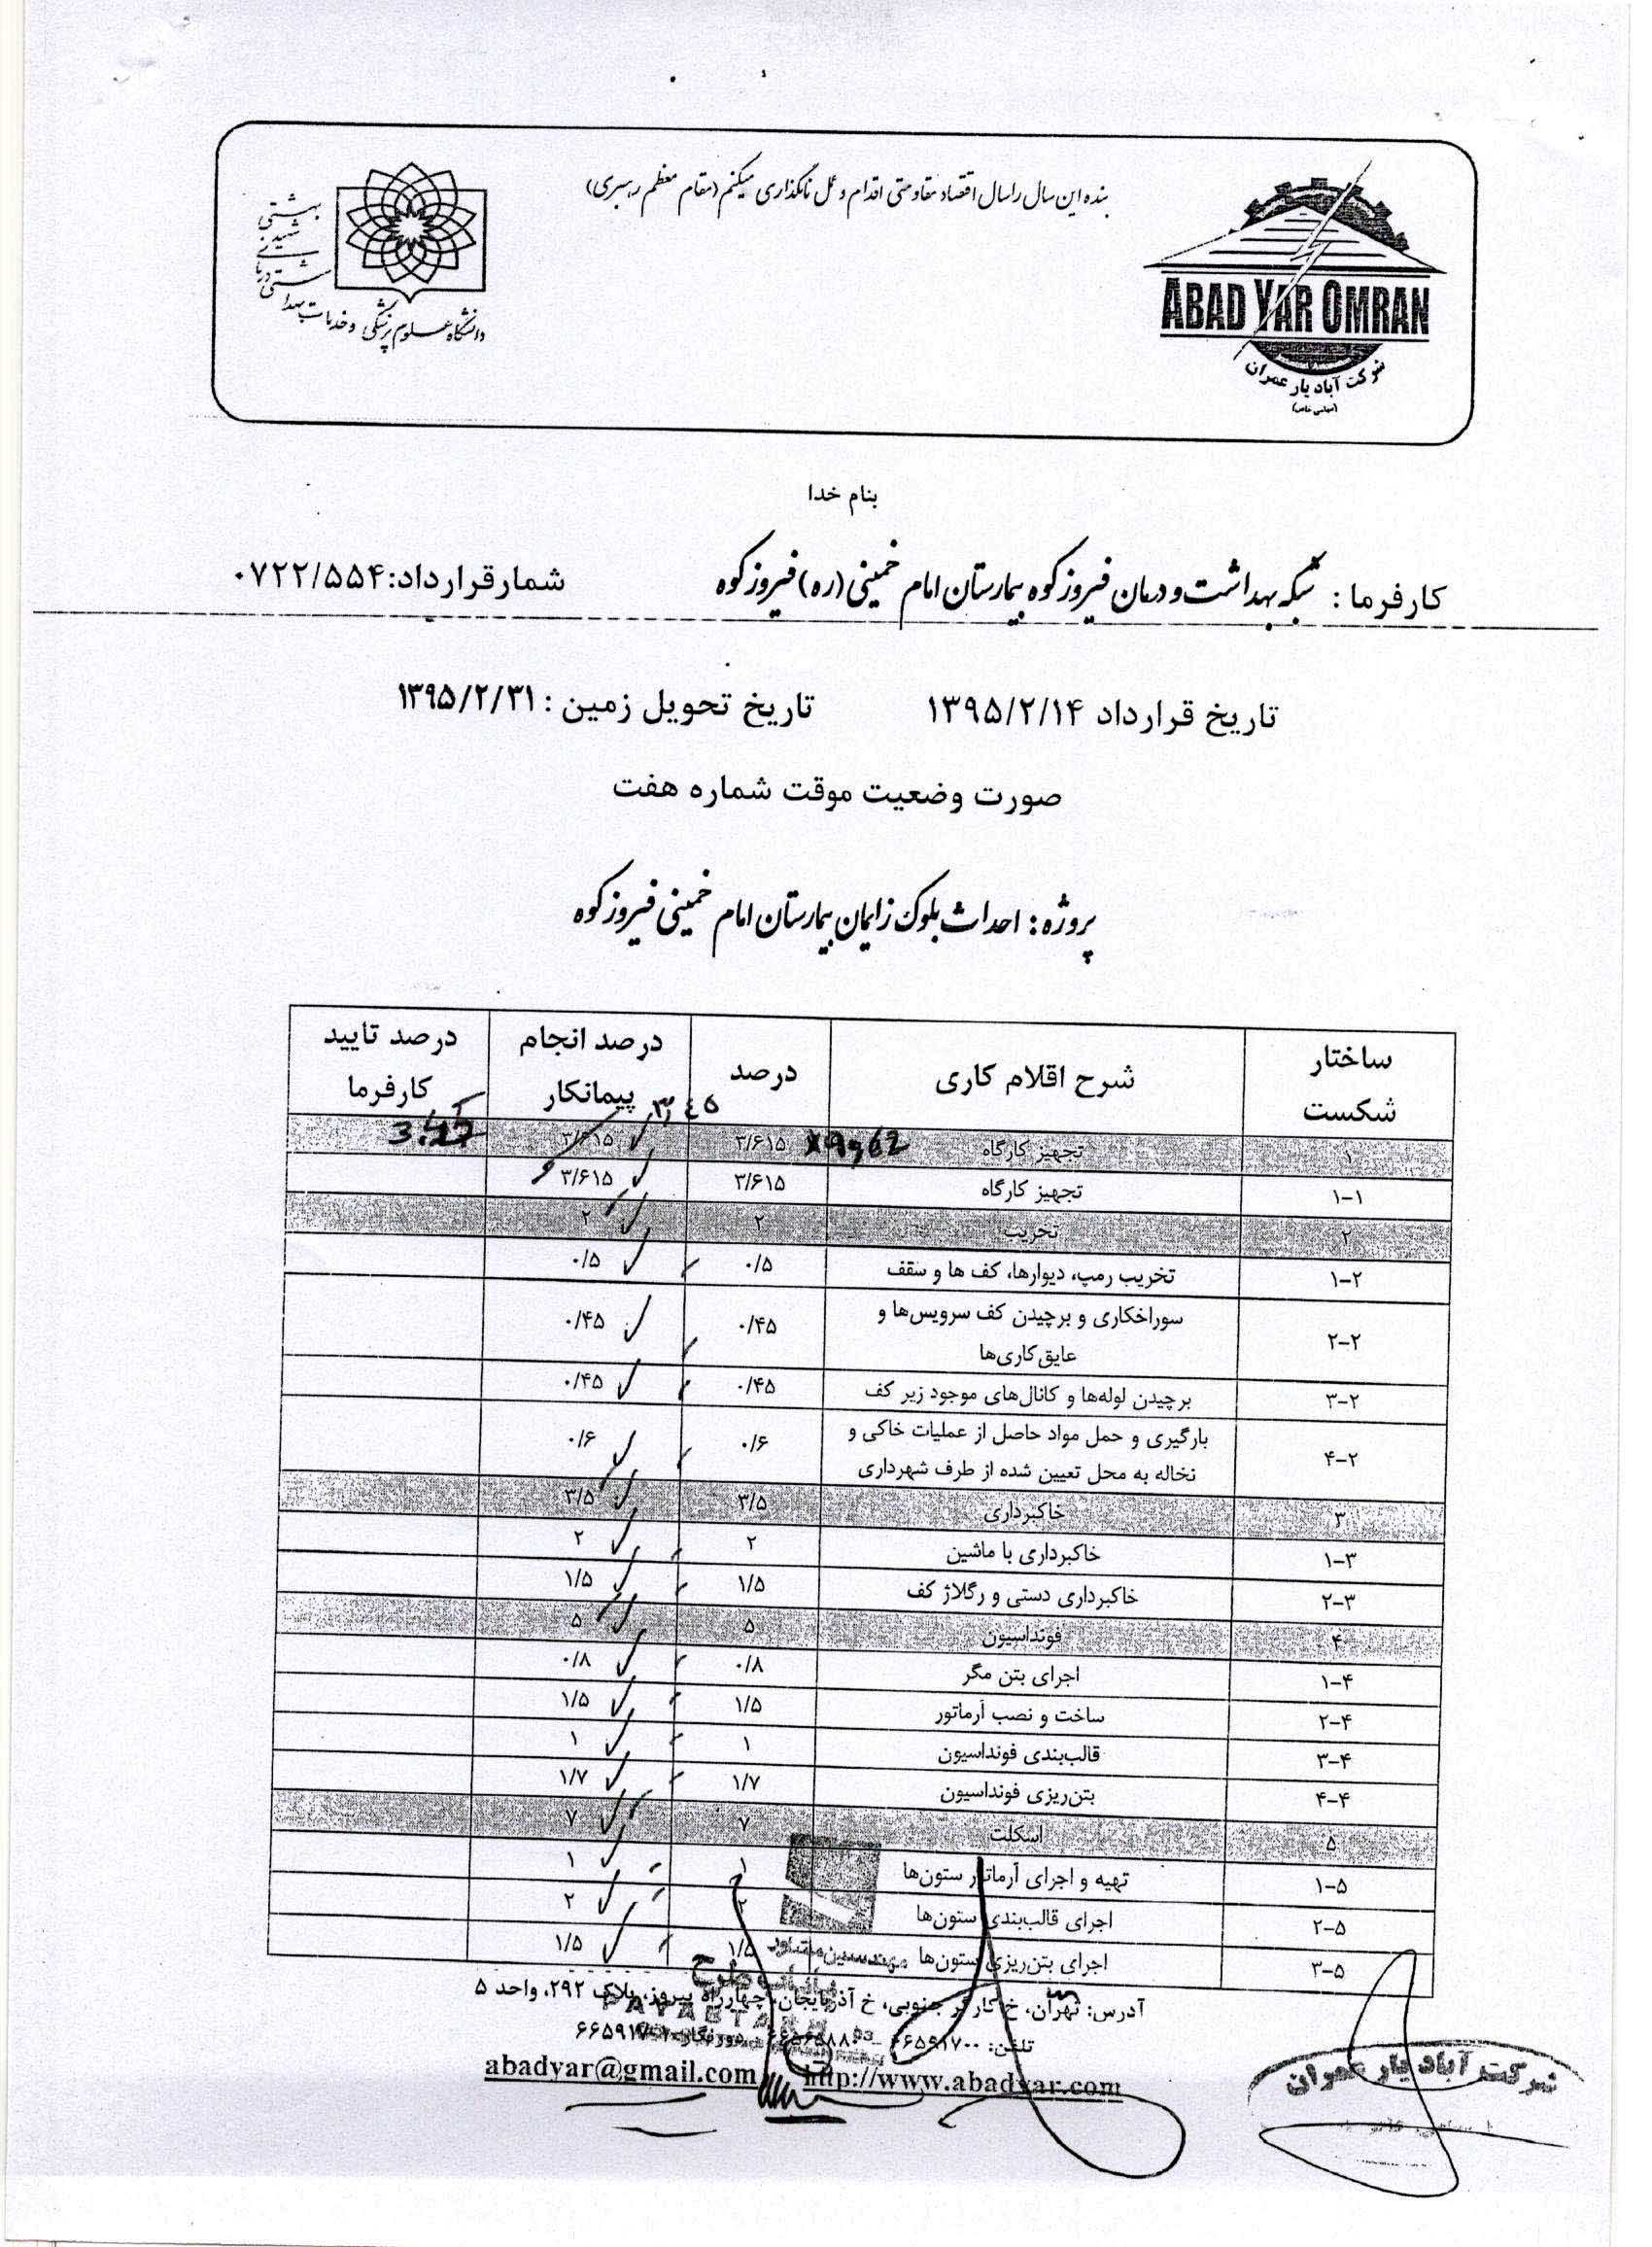 بنده این سال را سال اقتصاد مقاومتی اقدام و عمل نامگذاری میکنم (مقام معظم رهبری)
دانشگاه علوم پزشکی و خدمات بهداشتی درمانی شهید بهشتی
ABAD YAR OMRAN
شرکت آباد یار عمران
(سهامی خاص)
بنام خدا
کارفرما: شبکه بهداشت و درمان فیروزکوه بیمارستان امام خمینی (ره) فیروزکوه شمارقرارداد:۰۷۲۲/۵۵۴
تاریخ قرارداد ۱۳۹۵/۲/۱۴ تاریخ تحویل زمین : ۱۳۹۵/۲/۳۱
صورت وضعیت موقت شماره هفت
پروژه: احداث بلوک زایمان بیمارستان امام خمینی فیروزکوه
ساختار شکست شرح اقلام کاری درصد درصد انجام پیمانکار درصد تایید کارفرما
۳٫٤٥
۱ تجهیز کارگاه ۳/۶۱۵ ۳/۶۱۵
۱-۱ تجهیز کارگاه ۳/۶۱۵ ۳/۶۱۵
۲ تخریب ۲ ۲
۱-۲ تخریب رمپ، دیوارها، کف ها و سقف ۰/۵ ۰/۵
۲-۲ سوراخکاری و برچیدن کف سرویس‌ها و ۰/۴۵ ۰/۴۵
عایق‌کاری‌ها
۳-۲ برچیدن لوله‌ها و کانال‌های موجود زیر کف ۰/۴۵ ۰/۴۵
۴-۲ بارگیری و حمل مواد حاصل از عملیات خاکی و ۰/۶ ۰/۶
نخاله به محل تعیین شده از طرف شهرداری
۳ خاکبرداری ۳/۵ ۳/۵
۱-۳ خاکبرداری با ماشین ۲ ۲
۲-۳ خاکبرداری دستی و رگلاژ کف ۱/۵ ۱/۵
۴ فونداسیون ۵ ۵
۱-۴ اجرای بتن مگر ۰/۸ ۰/۸
۲-۴ ساخت و نصب آرماتور ۱/۵ ۱/۵
۳-۴ قالب‌بندی فونداسیون ۱ ۱
۴-۴ بتن‌ریزی فونداسیون ۱/۷ ۱/۷
۵ اسکلت ۷ ۷
۱-۵ تهیه و اجرای آرماتور ستون‌ها ۱ ۱
۲-۵ اجرای قالب‌بندی ستون‌ها ۲ ۲
۳-۵ اجرای بتن‌ریزی ستون‌ها ۱/۵ ۱/۵
مهندسین مشاور
آدرس: تهران، خ کارگر جنوبی، خ آذربایجان، چهارراه پیروز، پلاک ۲۹۲، واحد ۵
تلفن: ۶۶۵۹۱۷۰۰ دورنگار:
abadyar@gmail.com http://www.abadyar.com
شرکت آباد یار عمران